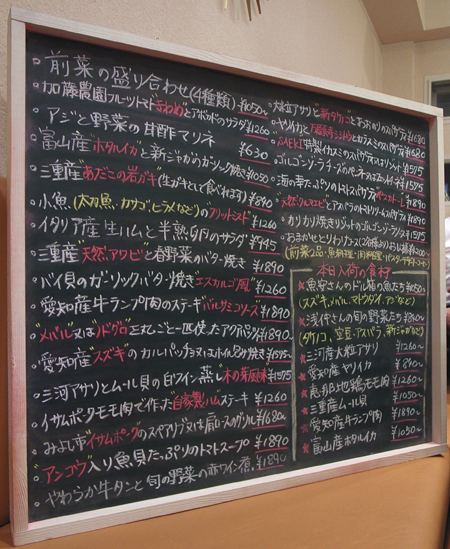 前菜の盛り合わせ(4種類) ¥1050〜
加藤農園フルーツトマトとアボカドのサラダ ¥1260
アジと野菜の甘酢マリネ ¥630
富山産"ホタルイカ"と新じゃがのガーリック焼き ¥1050
三重産"あだこの岩ガキ"(生ガキとして食べれます) ¥890
小魚(太刀魚、カサゴ、ヒラメなど)のフリットミスト ¥1260
イタリア産生ハムと半熟卵のサラダ ¥945
三重産"天然アワビ"と春野菜のバター焼き ¥1890
バイ貝のガーリックバター焼き エスカルゴ風 ¥1260
愛知産牛ランプ肉のステーキ バルサミコソース ¥1890
"メバル"又は"ノドグロ"を丸ごと一匹使ったアクアパッツァ
愛知産"スズキ"のカルパッチョ又は ¥1575
三河アサリとムール貝の白ワイン蒸し 木の芽風味 ¥1575
イサムポークモモ肉で作った自家製ハムステーキ ¥1260
みよし市"イサムポーク"のスペアリブ又は肩ロースのグリル ¥1680
"アンコウ"入り魚貝たっぷりのトマトスープ ¥1890
やわらか牛タンと旬の野菜の赤ワイン煮 ¥1890
大粒アサリと"新タケノコ"とあおのりのスパゲティ ¥1680
ヤリイカと とカラスミのスパゲティ ¥1680
特製イカスミのスパゲティ ¥1575
ゴルゴンゾーラチーズのペンネ ¥1575
海の幸たっぷりのトマトスパゲティ
天然クルマエビとアスパラのトマトクリームスパゲティ ¥1890
カリカリ焼きリゾットのゴルゴンゾーラソース ¥1575
おまかせとりわけコース(2名様より)お1人様
(前菜2品・魚料理・肉料理・パスタ
本日入荷の食材
魚屋さんのドル箱の魚たち ¥1050〜
(スズキ、メバル、マトウダイ、アジなど)
浅井さんの旬の野菜たち ¥1050〜
(タケノコ、空豆、アスパラ、新じゃがなど)
★三河産大粒アサリ ¥1260〜
★愛知産ヤリイカ ¥890〜
★恵那地鶏モモ肉 ¥1260〜
★三重産ムール貝 ¥1050〜
★愛知産牛ランプ肉 ¥1890〜
★富山産ホタルイカ ¥1050〜